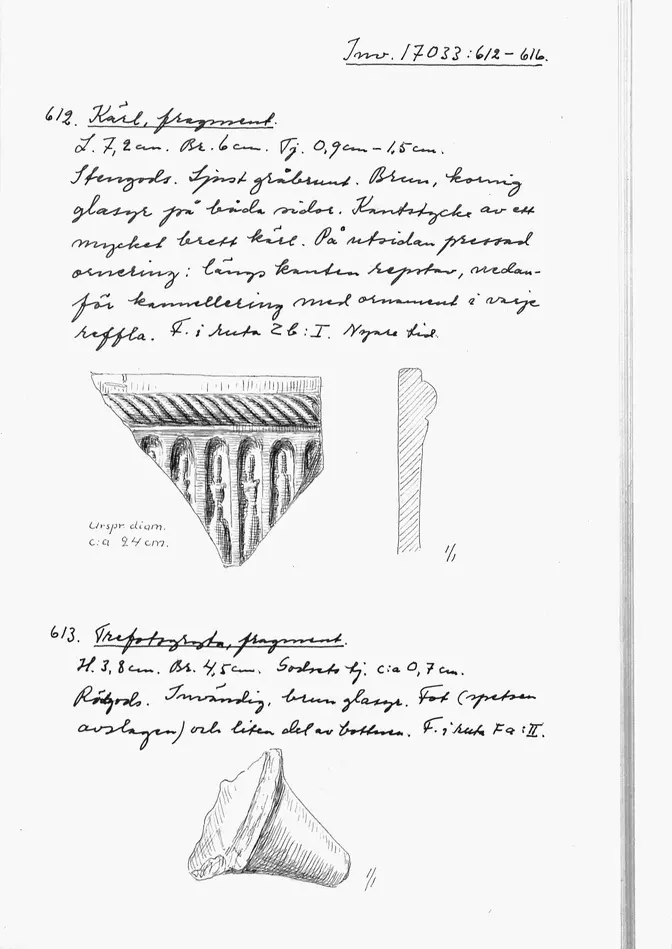 Inv. 17033:612-616.
612. Kärl, fragment.
L. 7,2cm. Br. 6cm. Tj. 0,9cm-1,5cm.
Stengods. Ljust gråbrunt. Brun, kornig
glasyr på båda sidor. Kantstycke av ett
mycket brett kärl. På utsidan pressad
ornering: längs kanten repstav, nedan-
för kannellering med ornament i varje
reffla. F. i ruta Zb:I. Nyare tid.
Urspr. diam.
c:a 24 cm.
1/1
613. Trefotsgryta, fragment.
H. 3,8cm. Br. 4,5cm. Godsets tj. c:a 0,7cm.
Rödgods. Invändig, brun glasyr. Fot (spetsen
avslagen) och liten del av bottnen. F. i ruta Fa:II.
1/1